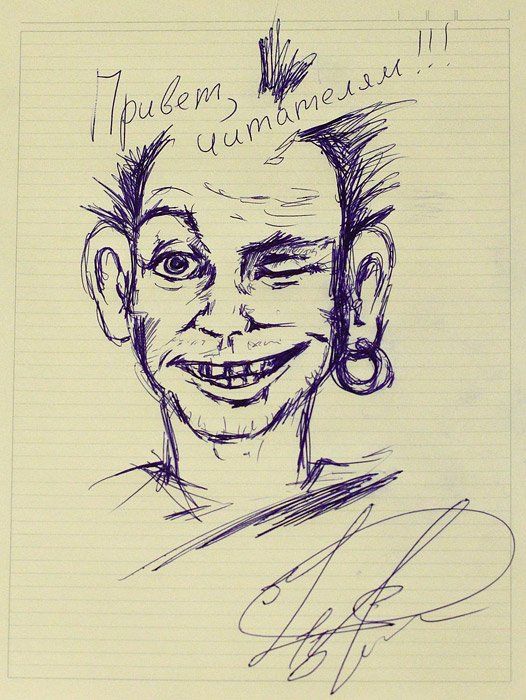 Привет,
читателям!!!